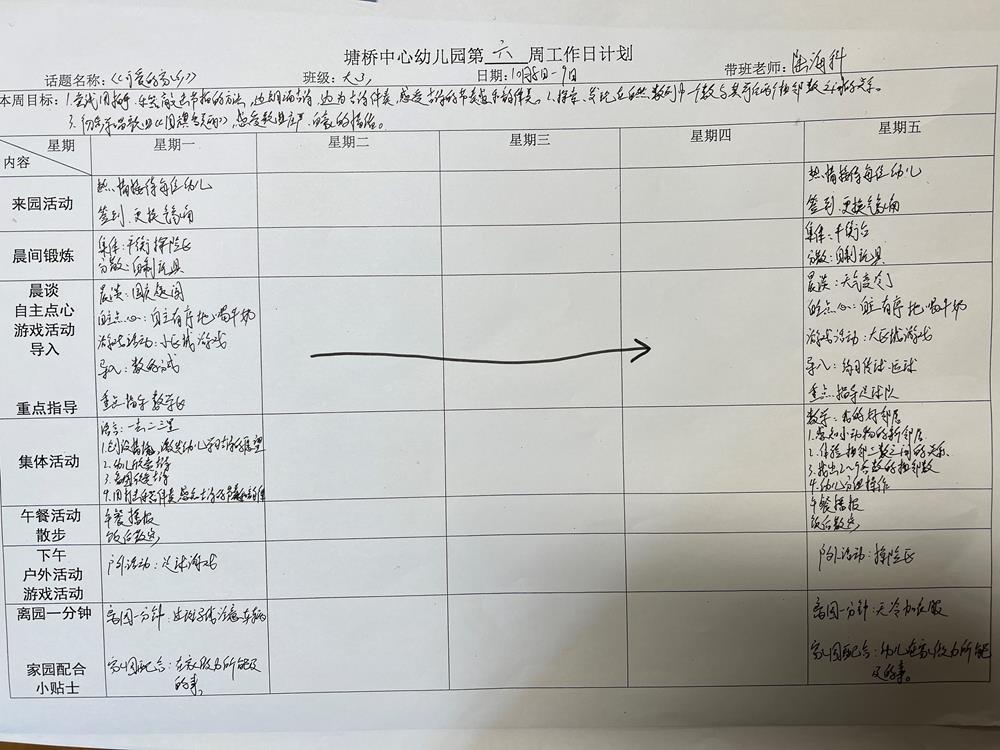 塘桥中心幼儿园第六周工作日计划
话题名称：《可爱的家乡》 班级：大3 日期：10月8日-9日 带班老师：
本周目标：1.尝试用 节拍的方法，边朗诵古诗，边为古诗伴奏，感受古诗的节奏 2.探索、 自然数列中一个数与其前后两个相邻数之间的关系。
3. 歌曲《国旗 》，感受歌曲庄严、自豪的情绪。
星期 星期一 星期二 星期三 星期四 星期五
内容
来园活动
热情接待每位幼儿
签到、更换气象角
热情接待每位幼儿
签到、更换气象角
晨间锻炼
集体：平衡探险区
分散：自制玩具
集体：平衡台
分散：自制玩具
晨谈
自主点心
游戏活动
导入
重点指导
晨谈：国庆趣闻
自主点心：自主有序地喝牛奶
游戏活动：小区域游戏
导入：数的方式
重点指导 数学区
晨谈：天气变冷
自主点心：自主有序地喝牛奶
游戏活动：大区域游戏
导入：约日传球、运球
重点指导足球队
集体活动
语言：一去二三里
1.创设情境，激发幼儿学习古诗的愿望
2.幼儿欣赏古诗
3. 古诗
4.用 伴奏，感受古诗的节奏和韵律
数学：有的好邻居
1.感知小动物的新邻居
2.体验相邻二数之间的关系
3.找出2~9各数的相邻数
4.幼儿分组操作
午餐活动
散步
午餐播报
饭后散步
午餐播报
饭后散步
下午
户外活动
游戏活动
户外活动：足球游戏
户外活动：探险区
离园一分钟
离园一分钟：过马路注意车辆
离园一分钟：天冷加衣服
家园配合
小贴士
家园配合：在家做力所能及
的事。
家园配合：幼儿在家做力所能
及的事。